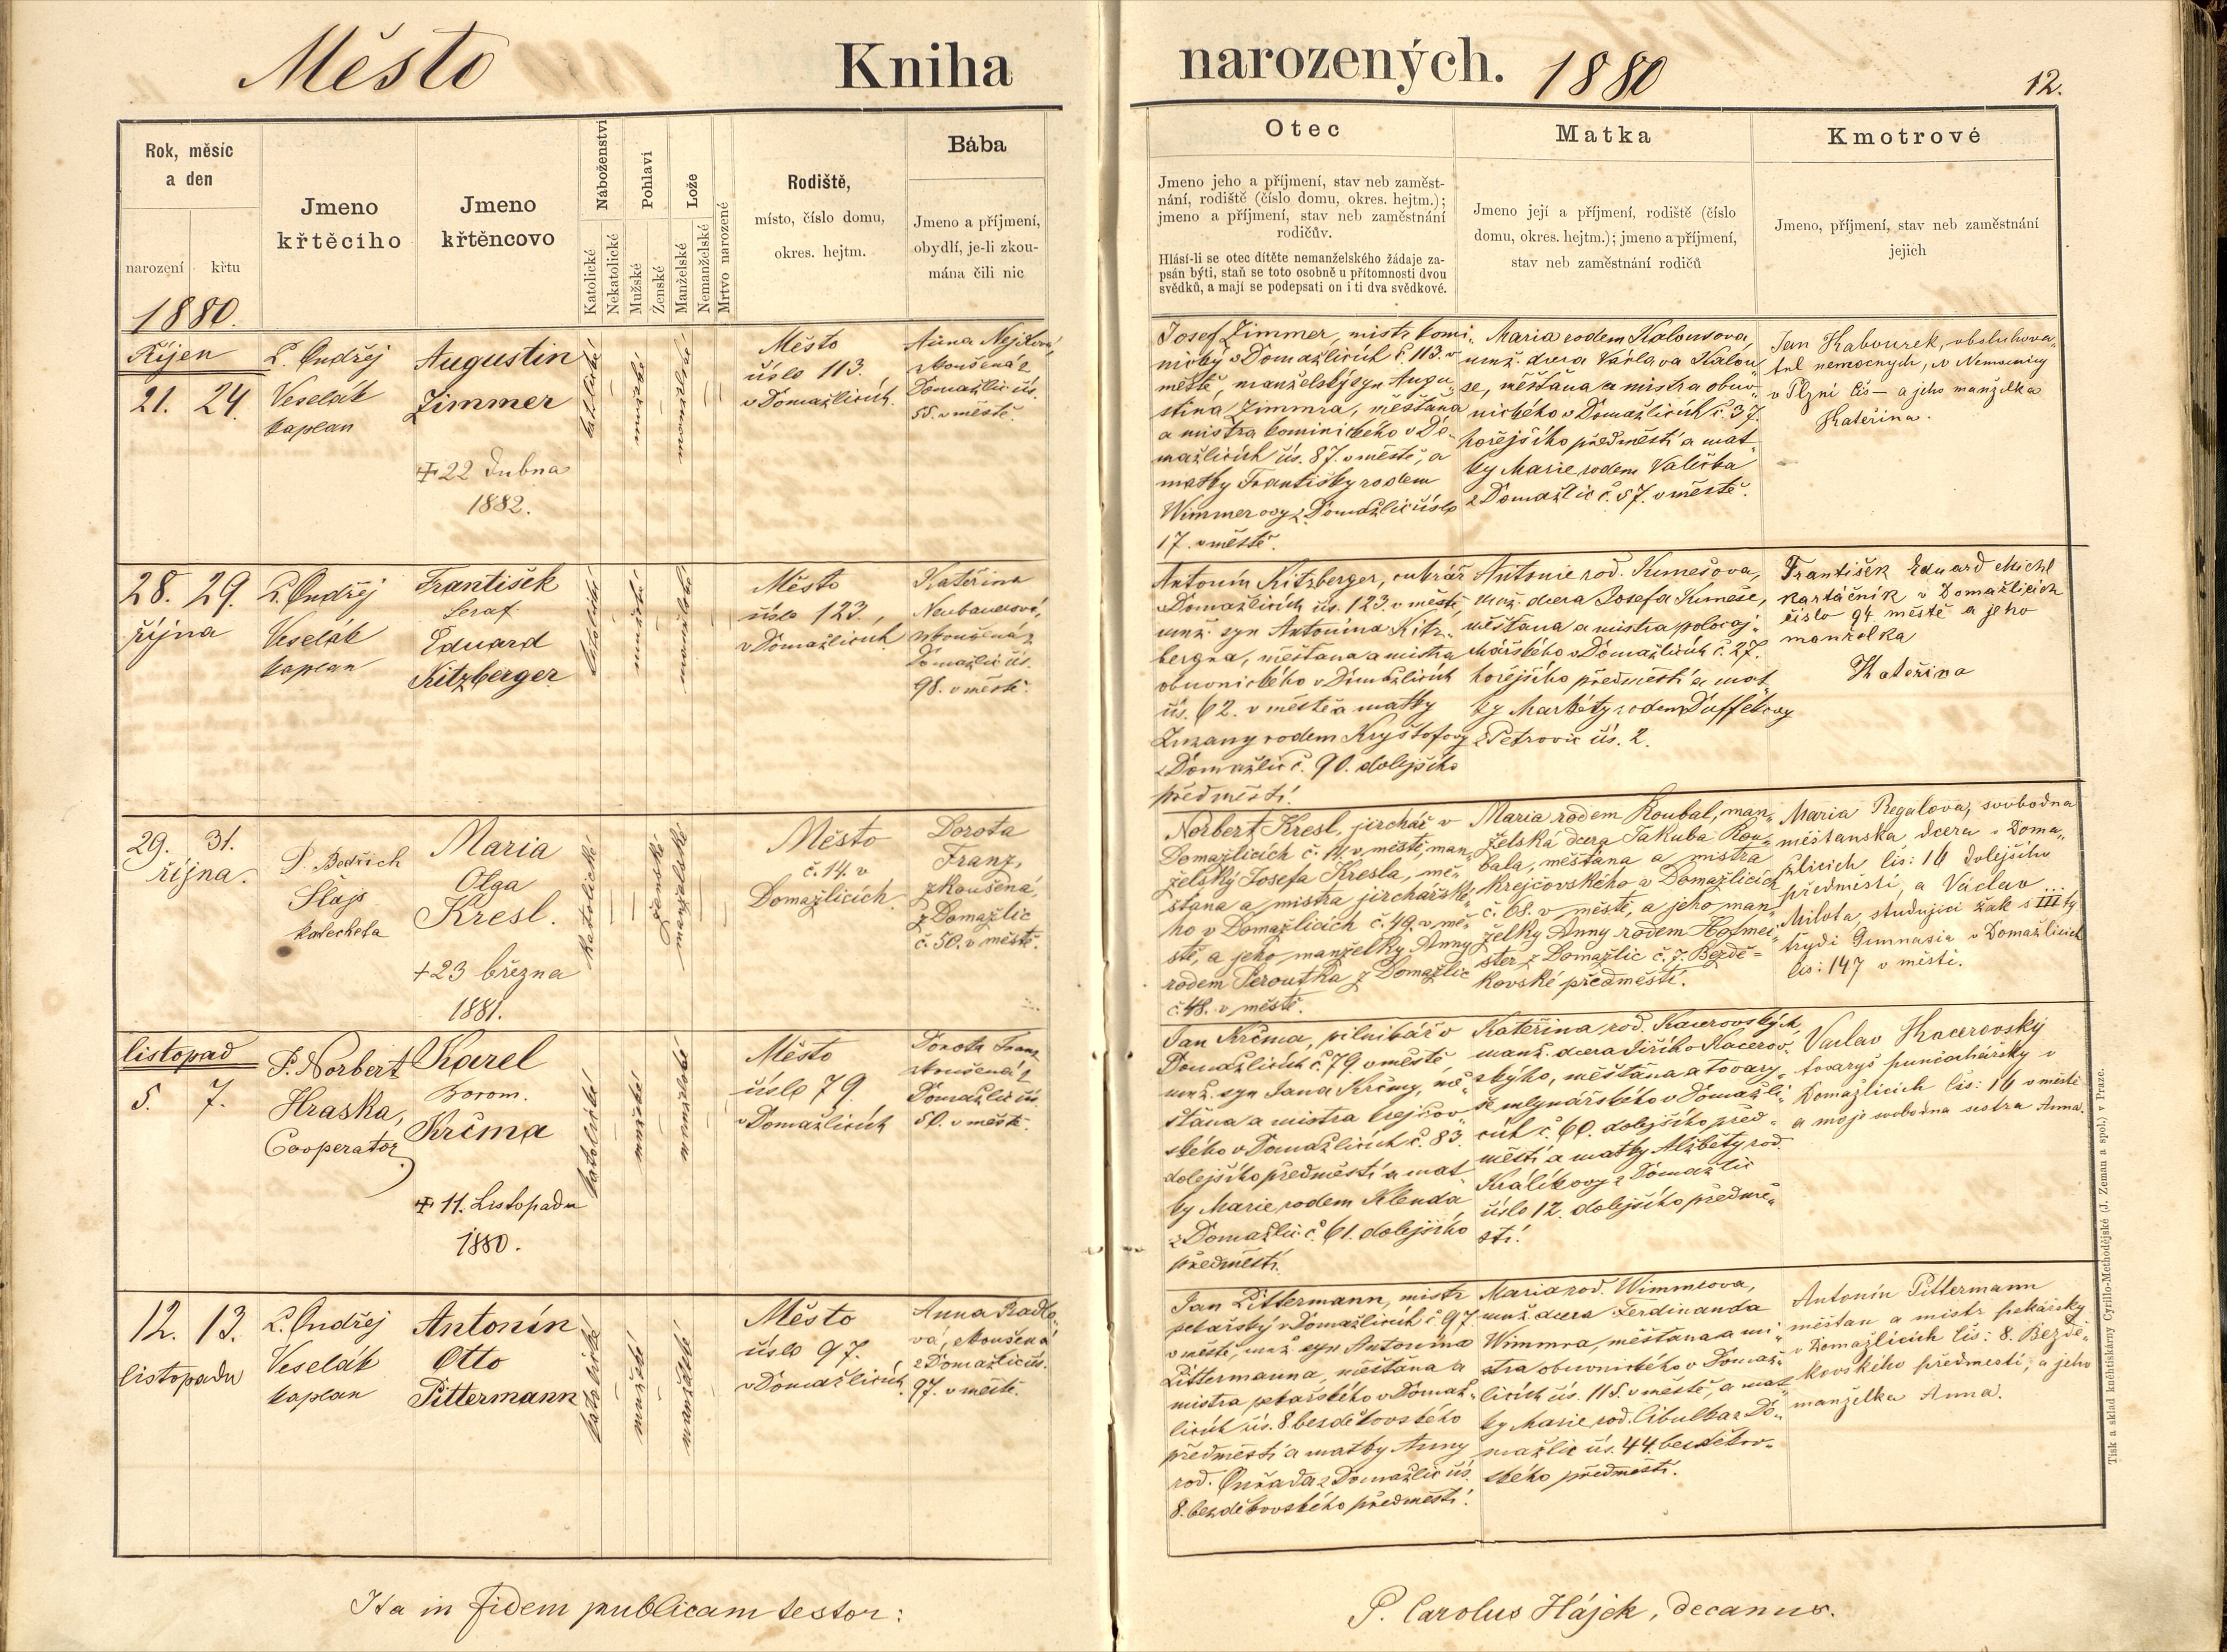 Město
Kniha
narozených.
1880
12.
Rok, měsíc
a den
narození
křtu
Jmeno
křtěcího
Jmeno
křtěncovo
Náboženství
Katolické
Nekatolické
Pohlaví
Mužské
Zenské
Lože
Manželské
Nemanželské
Mrtvo narozené
Rodiště,
místo, číslo domu,
okres. hejtm.
Bába
Jmeno a příjmení,
obydlí, je-li zkou-
mána čili nic
Otec
Jmeno jeho a příjmení, stav neb zaměst-
nání, rodiště (číslo domu, okres. hejtm.);
jmeno a příjmení, stav neb zaměstnání
rodičův.
Hlásí-li se otec dítěte nemanželského žádaje za-
psán býti, staň se toto osobně u přítomnosti dvou
svědků, a mají se podepsati on i ti dva svědkové.
Matka
Jmeno její a příjmení, rodiště (číslo
domu, okres. hejtm.); jmeno a příjmení,
stav neb zaměstnání rodičů
Kmotrové
Jmeno, příjmení, stav neb zaměstnání
jejich
1880.
Říjen
21. 24.
P. Ondřej
Veselák
kaplan
Augustin
Zimmer
+ 22 Dubna
1882.
katolické
mužské
manželské
Město
číslo 113.
v Domažlicích.
Anna
zkoušená z
Domažlic čís.
55. v městě.
Josef Zimmer, mistr komi-
nický v Domažlicích č. 113. v
městě, manželský syn Augu-
stina Zimmra, měšťana
a mistra kominického v Do-
mažlicích čís. 87. v městě, a
matky Františky rodem
Wimmerovy z Domažlic číslo
17. v městě.
Maria rodem Kalousova,
manž. dcera Václava Kalou-
se, měšťana a mistra obuv-
nického v Domažlicích č. 37.
hořejšího předměstí a mat-
ky Marie rodem Valečka
z Domažlic č. 57. v městě.
Jan Kabourek, obsluhova-
tel nemocnych, v Nemocnicy
v Plzni čís — a jeho manželka
Kateřina.
28. 29.
října
P. Ondřej
Veselák
kaplan
František
Seraf.
Eduard
Kitzberger
katolické
mužské
manželské
Město
číslo 123.,
v Domažlicích
Kateřina
Neubauerová,
zkoušená z
Domažlic čís.
98. v městě.
Antonín Kitzberger, cukrář
v Domažlicích čís. 123. v městě,
manž. syn Antonína Kitz-
bergra, měšťana a mistra
obuvnického v Domažlicích
čís. 62. v městě a matky
Zuzany rodem Kryštofovy
z Domažlic č. 90. dolejšího
předměstí.
Antonie rod. Kumešova,
manž. dcera Josefa Kumeše,
měšťana a mistra
v Domažlicích č. 27.
hořejšího předměstí a mat-
ky Markéty rodem Duffkovy
z Petrovic čís. 2.
František Eduard Michl
kartáčník v Domažlicích
číslo 94 městě a jeho
manželka
Kateřina
29. 31.
října.
P. Bedřich
Šlajs
katecheta
Maria
Olga
Kresl.
+ 23 března
1881.
katolické
ženské
manželské
Město
č. 14. v
Domažlicích.
Dorota
Franz,
zkoušená,
z Domažlic
č. 50. v městě.
Norbert Kresl, jirchář v
Domažlicích č. 14. v městě, man-
želský Josefa Kresla, mě-
šťana a mistra jirchářské-
ho v Domažlicích č. 49. v mě-
stě, a jeho manželky Anny
rodem Peroutka z Domažlic
č. 48. v městě.
Maria rodem Roubal, man-
želská dcera Jakuba Rou-
bala, měšťana a mistra
krejčovského v Domažlicích
č. 68. v městě, a jeho man-
želky Anny rodem Hofmei-
ster z Domažlic č. 7. Bezdě-
kovské předměstí.
Maria Regalova, svobodna
měšťanska dcera v Doma-
žlicich čis: 16 Dolejšího
předměstí, a Václav
Milota, studujici žak s III ty
třydi Gimnasia v Domažlicich
čis: 147 v městi.
listopad
5. 7.
P. Norbert
Hraska,
Cooperator
Karel
Borom.
Krčma
+ 11. Listopadu
1880.
katolické
mužské
manželské
Město
číslo 79.
v Domažlicích
Dorota Franz
zkoušená z
Domažlic čís
50. v městě.
Jan Krčma, pilnikář v
Domažlicích č. 79. v městě
manž. syn Jana Krčmy, mě-
šťana a mistra krejčov-
ského v Domažlicích č. 83.
dolejšího předměstí a mat-
ky Marie, rodem Klenda
z Domažlic č. 61. dolejšího
předměstí.
Kateřina rod. Kacerovských,
manž. dcera Jiřího Kacerov-
ského, měšťana a tovary-
še mlynářského v Domažli-
cích č. 60. dolejšího před-
městí a matky Alžběty rod.
Králíkovy z Domažlic
číslo 12. dolejšího předmě-
stí.
Vaclav Kacerovský
tovaryš punčochářsky v
Domažlicich čis: 16 v městě
a moje svobodna sestra Anna.
12. 13.
listopadu
P. Ondřej
Veselák
kaplan
Antonín
Otto
Pittermann
katolické
mužské
manželské
Město
číslo 97.
v Domažlicích
Anna Radlo-
vá, zkoušená
z Domažlic čís.
97. v městě.
Jan Pittermann, mistr
pekařský v Domažlicích č. 97.
v městě, manž. syn Antonína
Pittermanna, měšťana a
mistra pekařského v Domaž-
licích čís. 8 bezděkovského
předměstí a matky Anny
rod. z Domažlic čís.
8. bezděkovského předměstí.
Maria rod. Wimmrova,
manž. dcera Ferdinanda
Wimmra, měšťana a mi-
stra obuvnického v Domaž-
licích čís. 115. v městě, a mat-
ky Marie, rod. Cibulka z Do-
mažlic čís. 44. bezděkov-
ského předměstí.
Antonín Pittermann
měšťan a mistr pekářsky
v Domažlicich čis: 8. Bezdě-
kovského předmesti, a jeho
manželka Anna.
Ita in fidem publicam testor:
P. Carolus Hájek, decanus.
Tisk a sklad kněhtiskárny Cyrillo-Methodějské (J. Zeman a spol.) v Praze.